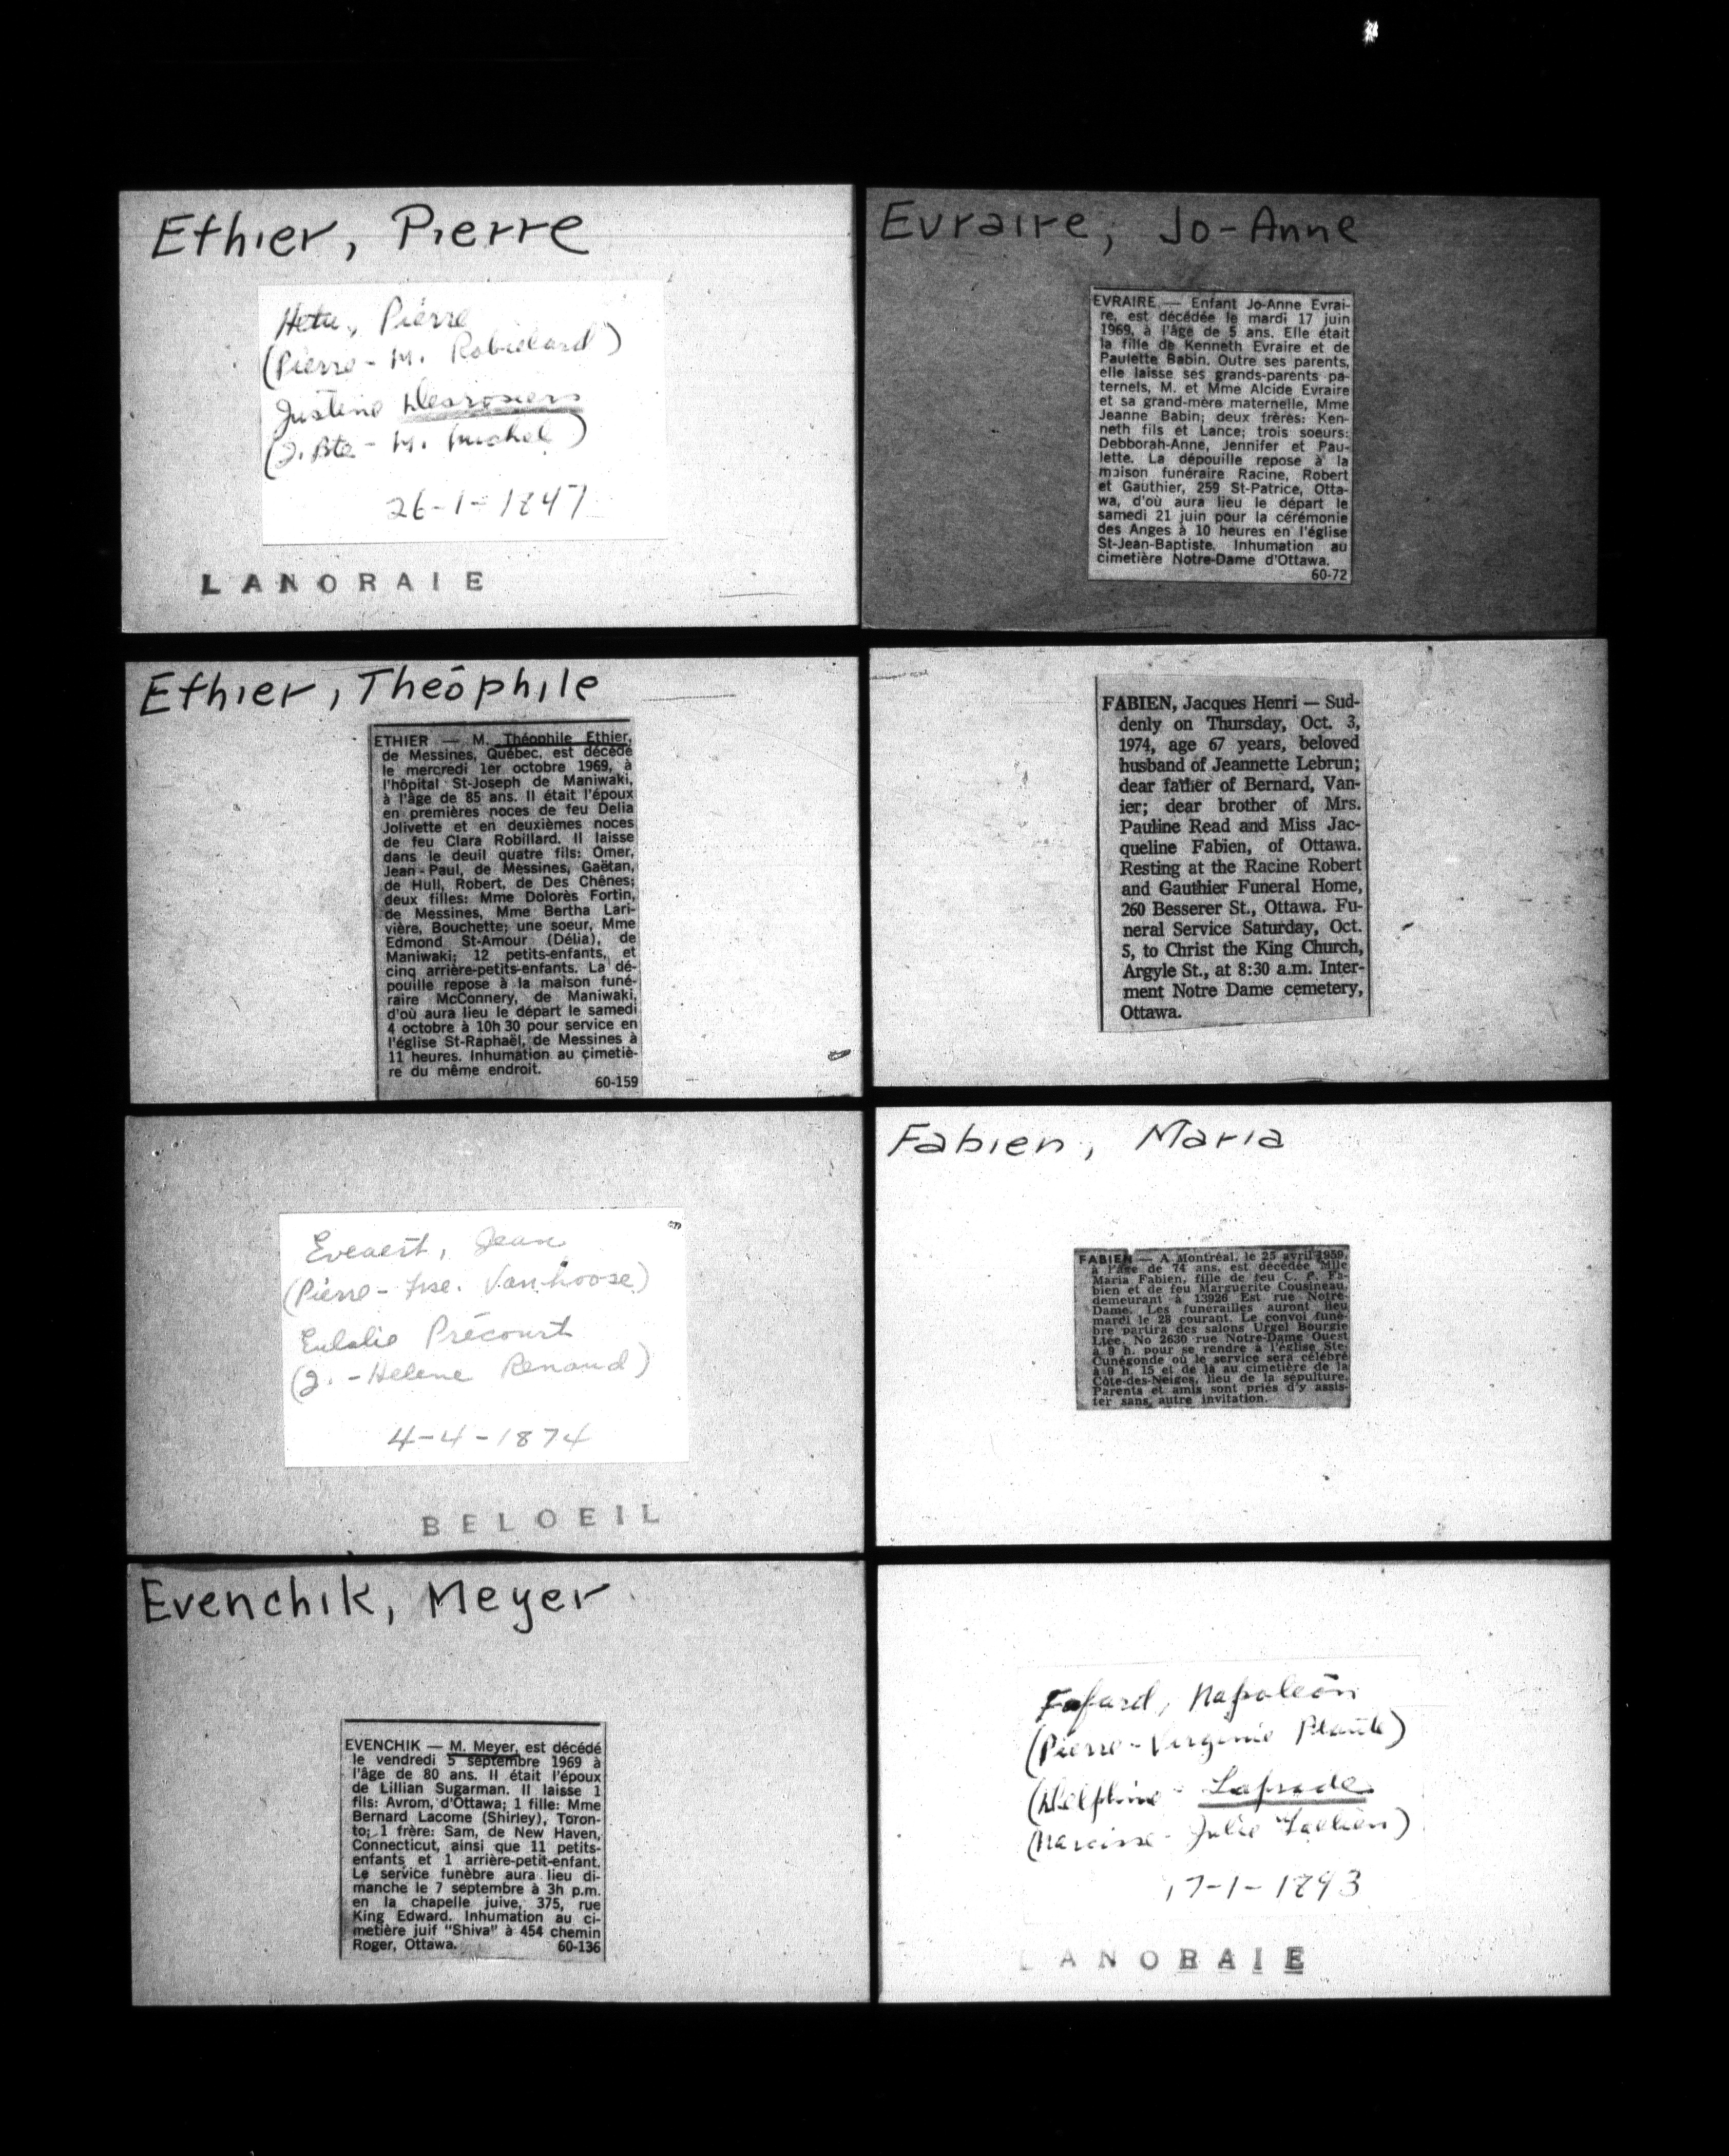 Ethier, Pierre
Hetu, Pierre
(Pierre - M. Robillard)
Justine Desrosiers
(J. Bte - M. Michel)
26-1-1847
LANORAIE
Ethier, Théophile
ETHIER — M. Théophile Ethier,
de Messines, Québec, est décédé
le mercredi 1er octobre 1969, à
l'hôpital St-Joseph de Maniwaki,
à l'âge de 85 ans. Il était l'époux
en premières noces de feu Delia
Jolivette et en deuxièmes noces
de feu Clara Robillard. Il laisse
dans le deuil quatre fils: Omer,
Jean-Paul, de Messines, Gaëtan,
de Hull, Robert, de Des Chênes;
deux filles: Mme Dolorès Fortin,
de Messines, Mme Bertha Lari-
vière, Bouchette; une soeur, Mme
Edmond St-Amour (Délia), de
Maniwaki; 12 petits-enfants, et
cinq arrière-petits-enfants. La dé-
pouille repose à la maison funé-
raire McConnery, de Maniwaki,
d'où aura lieu le départ le samedi
4 octobre à 10h 30 pour service en
l'église St-Raphaël, de Messines à
11 heures. Inhumation au cimetiè-
re du même endroit.
60-159
Eveaert, Jean
(Pierre - Jse. Vanhoose)
Eulalie Précourt
(J. - Helene Renaud)
4-4-1874
BELOEIL
Evenchik, Meyer
EVENCHIK — M. Meyer, est décédé
le vendredi 5 septembre 1969 à
l'âge de 80 ans. Il était l'époux
de Lillian Sugarman. Il laisse 1
fils: Avrom, d'Ottawa; 1 fille: Mme
Bernard Lacome (Shirley), Toron-
to; 1 frère: Sam, de New Haven,
Connecticut, ainsi que 11 petits-
enfants et 1 arrière-petit-enfant.
Le service funèbre aura lieu di-
manche le 7 septembre à 3h p.m.
en la chapelle juive, 375, rue
King Edward. Inhumation au ci-
metière juif "Shiva" à 454 chemin
Roger, Ottawa. 60-136
Evraire, Jo-Anne
EVRAIRE — Enfant Jo-Anne Evrai-
re, est décédée le mardi 17 juin
1969, à l'âge de 5 ans. Elle était
la fille de Kenneth Evraire et de
Paulette Babin. Outre ses parents,
elle laisse ses grands-parents pa-
ternels, M. et Mme Alcide Evraire
et sa grand-mère maternelle, Mme
Jeanne Babin; deux frères: Ken-
neth fils et Lance; trois soeurs:
Debborah-Anne, Jennifer et Pau-
lette. La dépouille repose à la
maison funéraire Racine, Robert
et Gauthier, 259 St-Patrice, Otta-
wa, d'où aura lieu le départ le
samedi 21 juin pour la cérémonie
des Anges à 10 heures en l'église
St-Jean-Baptiste. Inhumation au
cimetière Notre-Dame d'Ottawa.
60-72
FABIEN, Jacques Henri — Sud-
denly on Thursday, Oct. 3,
1974, age 67 years, beloved
husband of Jeannette Lebrun;
dear father of Bernard, Van-
ier; dear brother of Mrs.
Pauline Read and Miss Jac-
queline Fabien, of Ottawa.
Resting at the Racine Robert
and Gauthier Funeral Home,
260 Besserer St., Ottawa. Fu-
neral Service Saturday, Oct.
5, to Christ the King Church,
Argyle St., at 8:30 a.m. Inter-
ment Notre Dame cemetery,
Ottawa.
Fabien, Maria
FABIEN — A Montréal, le 25 avril 1959,
à l'âge de 74 ans, est décédée Mlle
Maria Fabien, fille de feu C. P. Fa-
bien et de feu Marguerite Cousineau,
demeurant à 13926 Est rue Notre-
Dame. Les funérailles auront lieu
mardi le 28 courant. Le convoi funè-
bre partira des salons Urgel Bourgie
Ltée, No 2630 rue Notre-Dame Ouest
à 9 h. pour se rendre à l'église Ste-
Cunégonde où le service sera célébré
à 9 h. 15 et de là au cimetière de la
Côte-des-Neiges, lieu de la sépulture.
Parents et amis sont priés d'y assis-
ter sans autre invitation.
Fafard, Napoléon
(Pierre - Virginie Plante)
(Delphine - Laprade
(Narcisse - Julie
17-1-1893
LANORAIE